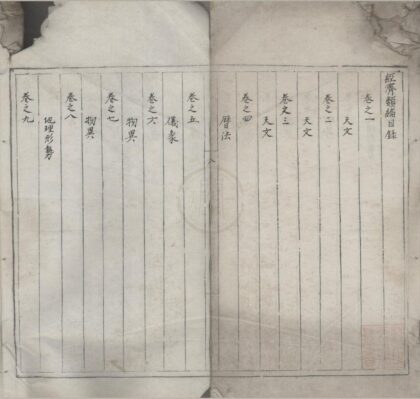 經濟類編目錄
卷之一
天文
卷之二
天文
卷之三
天文
卷之四
曆法
卷之五
儀象
卷之六
物異
卷之七
物異
卷之八
地理形勢
卷之九